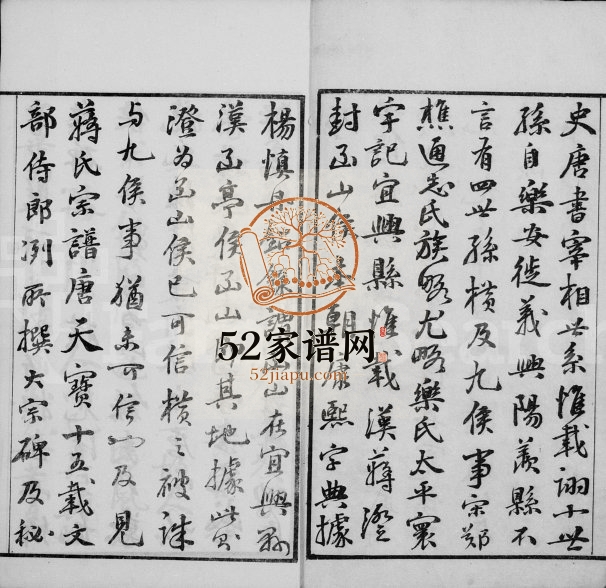 史唐書宰相世系惟载詡十世
孫自樂安徙義興陽羨縣不
言有四世孫横及九侯事宋鄭
樵通志氏族略尤略樂氏太平寰
宇記宜興縣惟载漢蔣澄
封函山侯本朝康熙字典據
楊慎丹鉛録謂函山在宜興縣
漢函亭侯函山即其地據此則
澄为函山侯已可信横之被诛
与九侯事猶未可信一及見
蔣氏宗譜唐天寶十五载文
部侍郎冽所撰大宗碑及秘
52家谱网
52jiapu.com